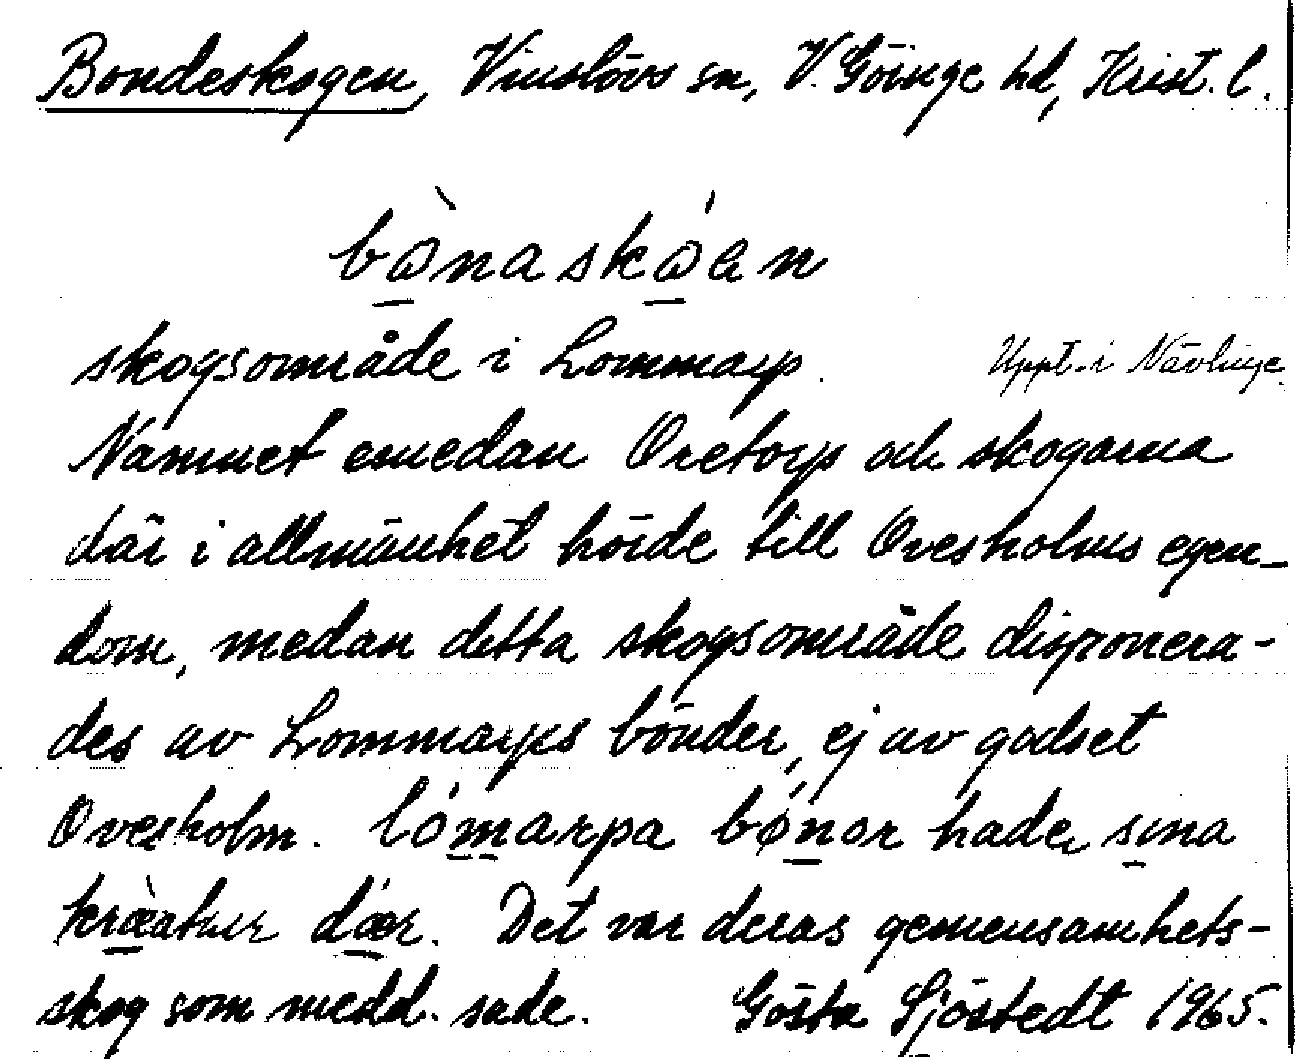 Bondeskogen, Vinslövs sn, V. Göinge hd, Krist. l.
bònaskóen
skogsområde i Lommarp. Uppt. i Nävlinge.
Namnet emedan Oretorp och skogarna
där i allmänhet hörde till Ovesholms egen-
dom, medan detta skogsområde dispone­ra-
des av Lommarps bönder, ej av godset
Ovesholm. lómarpa bǿnor hade sina
kræ̀atur dǽr. Det var deras gemensamhets-
skog som medd. sade. Gösta Sjöstedt 1965.